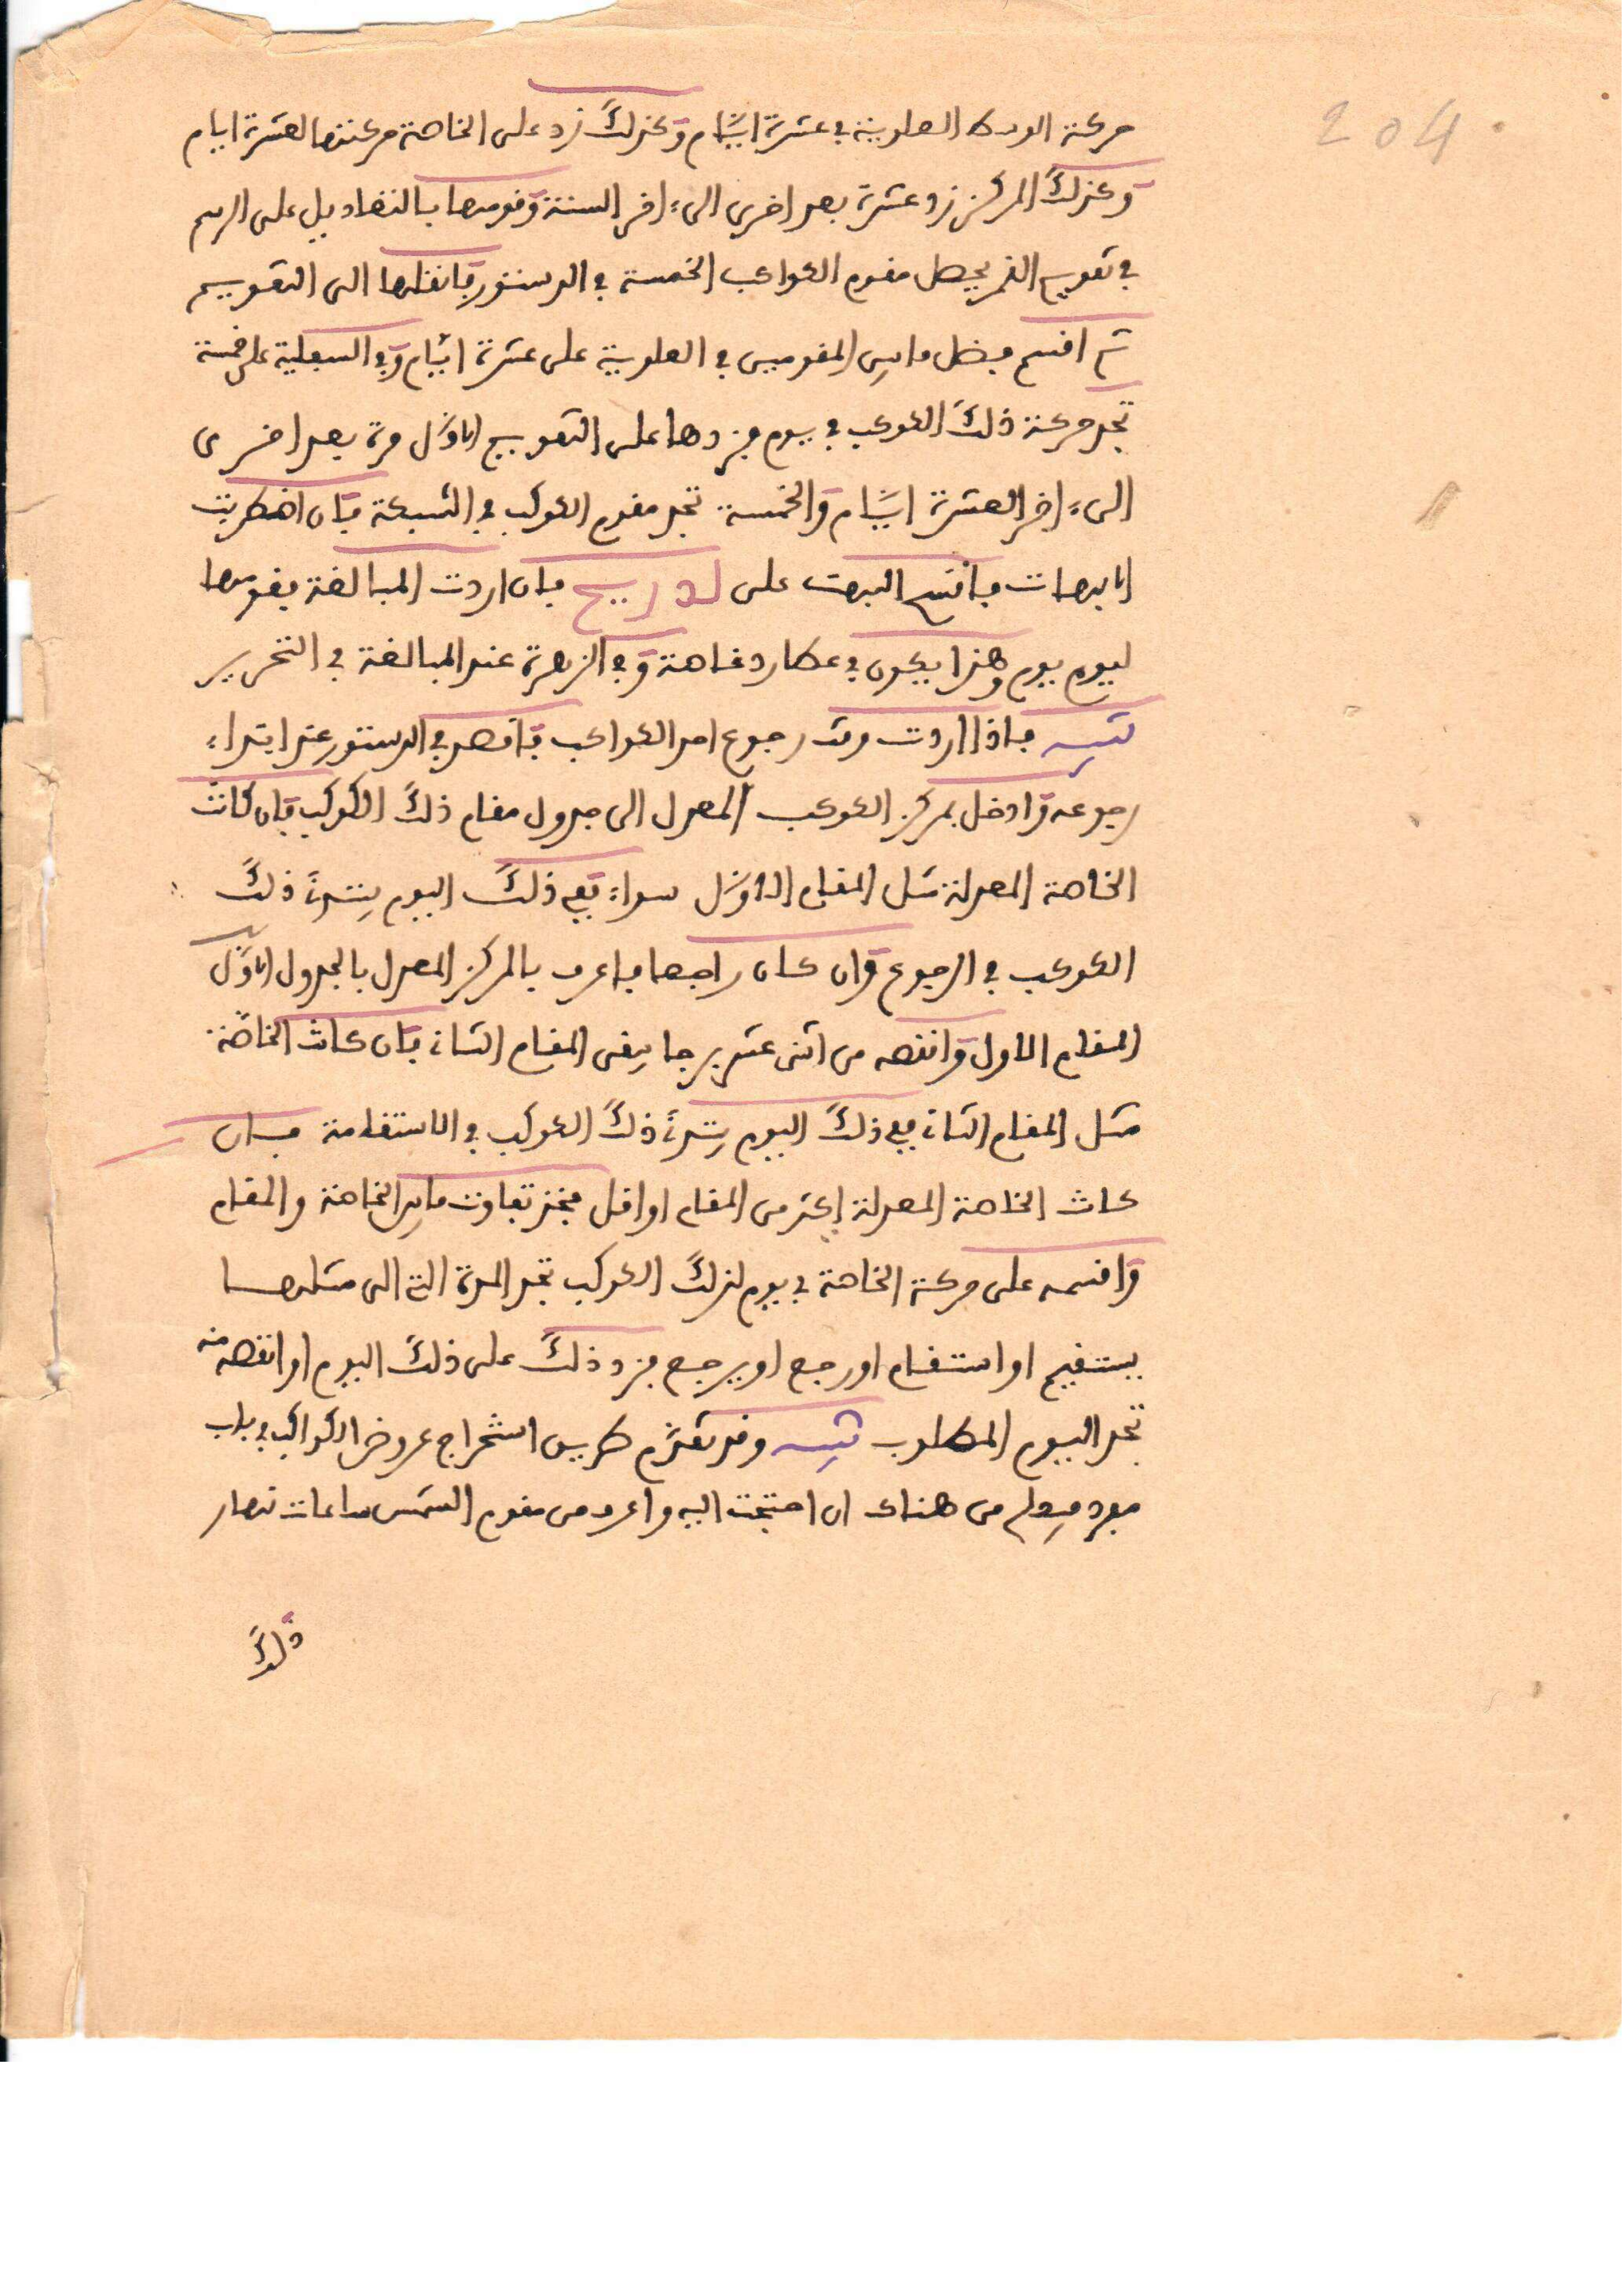 204
حركة العلوية في عشرة ايام وكذلك زد على الخاصة حركتها لعشرة ايام
وكذلك المركز زد عشرة بعد اخرى الىء اخر السنة وقومها بالتعاديل على الرسم
في تقويم القمر يحصل مقوم الكواكب الخمسة في الدستور فانقلها الى التقويم
ثم اقسم فضل ما بين المقومين في العلوية على عشرة ايام وفي السفلية على خمسة
تجد حركة ذلك الكوكب في يوم فزدها على التقويم الاول مرة بعد اخرى
الىء اخر العشرة ايام والخمسة تجد مقوم الكوكب في الشبكة فان اضطربت
الابهات فاقسم البهت على فان اردت المبالغة فقومها
ليوم يوم وهذا يكون في عطارد خاصة وفي الزهرة عند المبالغة في التحرير
تنبيه فاذا اردت وقت رجوع احد الكواكب فاقصد في الدستور عند ابتداء
رجوعه وادخل بمركز الكوكب المعدل الى جدول مقام ذلك الكوكب فان كانت
الخاصة المعدلة مثل المقام الاول سواء ففي ذلك اليوم يبتدئ ذلك
الكوكب في الرجوع وان كان راجعا فاعرف بالمركز المعدل بالجدول الاول
المقام الاول وانقصه من اثنى عشر برجا يبقى المقام الثاني فان كانت الخاصة
مثل المقام الثاني ففي ذلك اليوم يبتدئ ذلك الكوكب في الاستقامة فان
كانت الخاصة المعدلة اكثر من المقام او اقل فخذ تفاوت ما بين الخاصة والمقام
واقسمه على حركة الخاصة في يوم لذلك الكوكب تجد المدة التي الى مثلها
يستقيم او استقام او رجع او يرجع فزد ذلك على ذلك اليوم او انقصه منه
تجد اليوم المطلوب تنبيه وقد تقدم طريق استخراج عروض الكواكب في باب
من هناك ان احتجت اليه واعرف من مقوم الشمس ساعات نهار
ذلك